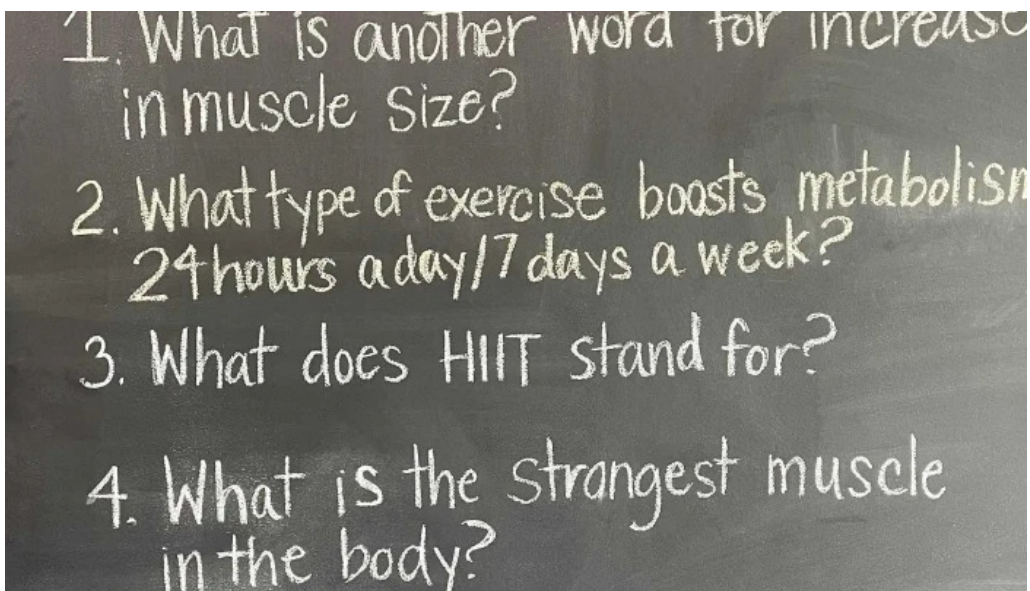 1. What is another word for increase
in muscle size?
2. What type of exercise boosts metabolism
24 hours a day/7 days a week?
3. What does HIIT stand for?
4. What is the strongest muscle
in the body?